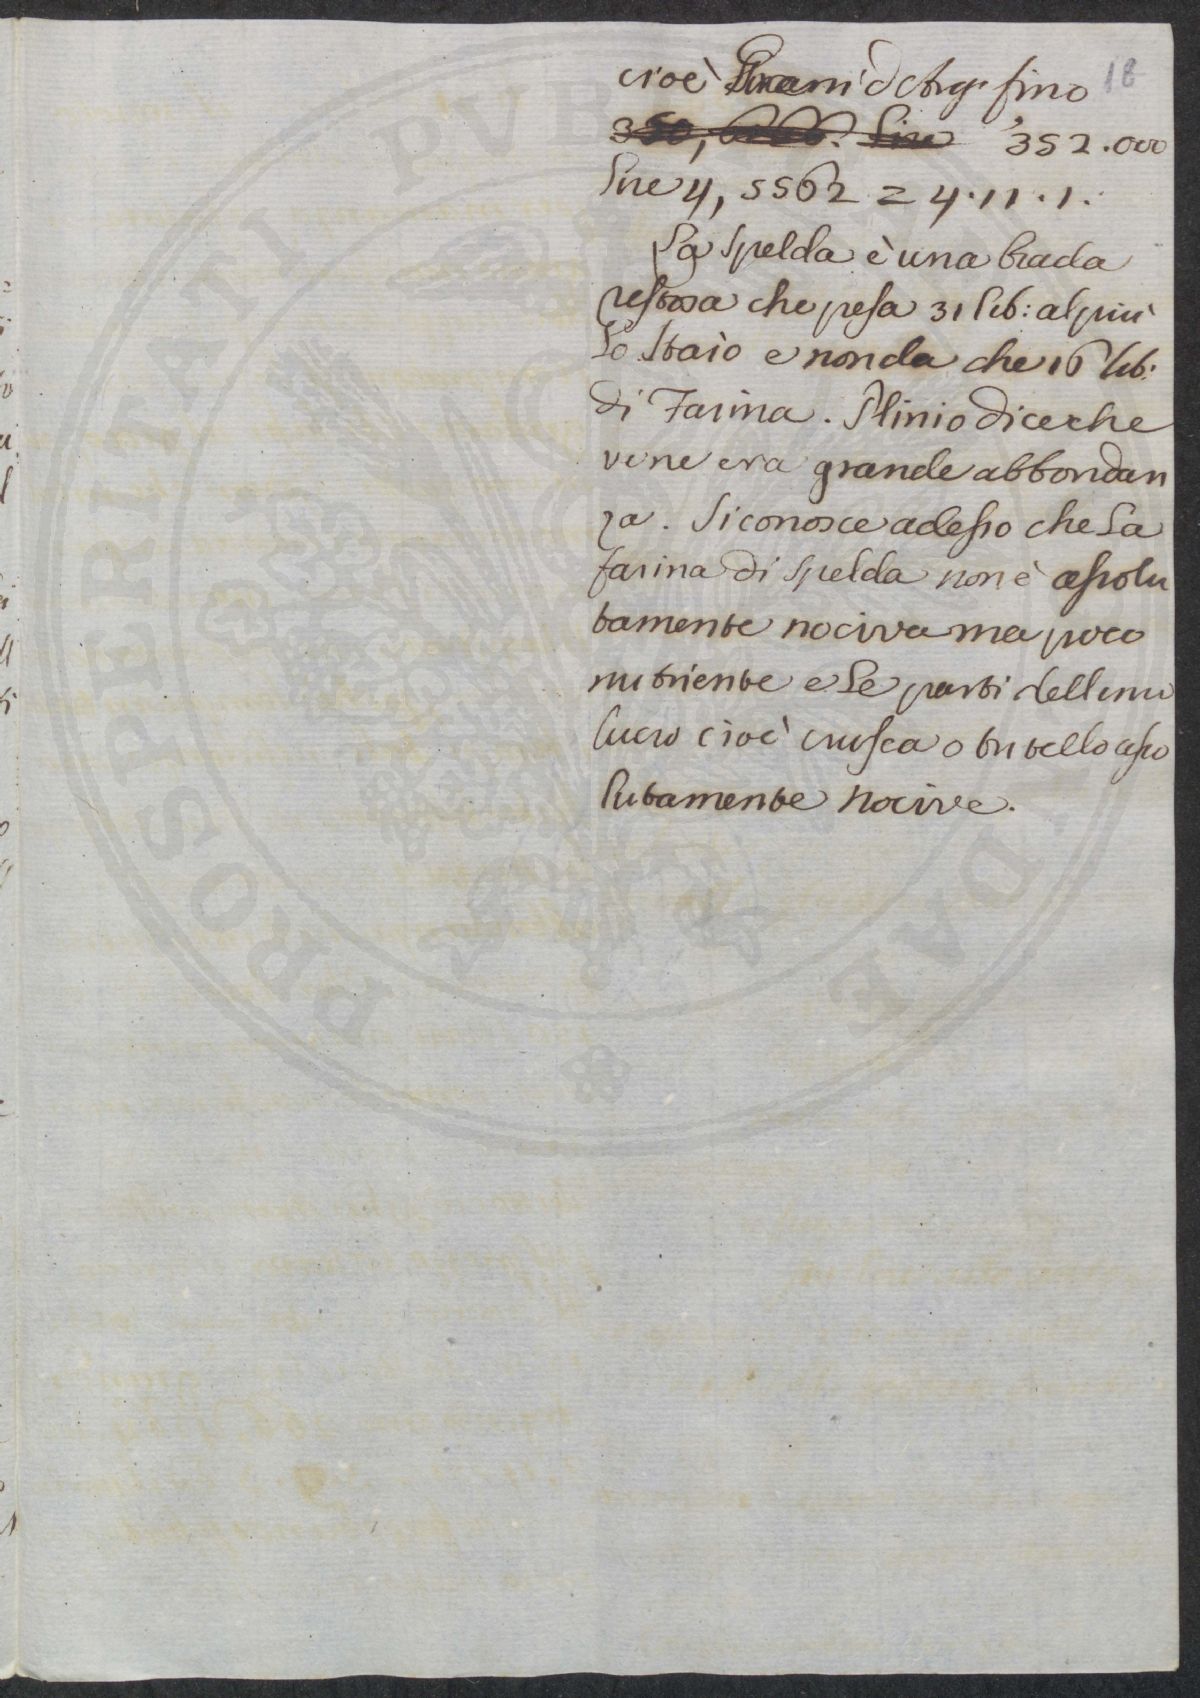 cioè Grani d'Arg. fino 18
350, Lire 352.000
Lire 4, 5562 = 4.11.1.
La Spelda è una biada
restosa che pesa 31 lib: al piú
Lo Staio e non da che 16 lib:
di Farina. Plinio dice che
vene era grande abbondan
za. Si conosce adesso che La
farina di Spelda non è assolu
tamente nociva ma poco
nutriente e Le parti dell invi
lucro cioè crusca o tritello asso
lutamente nocive.
PROSPERITATI PVBL DAE